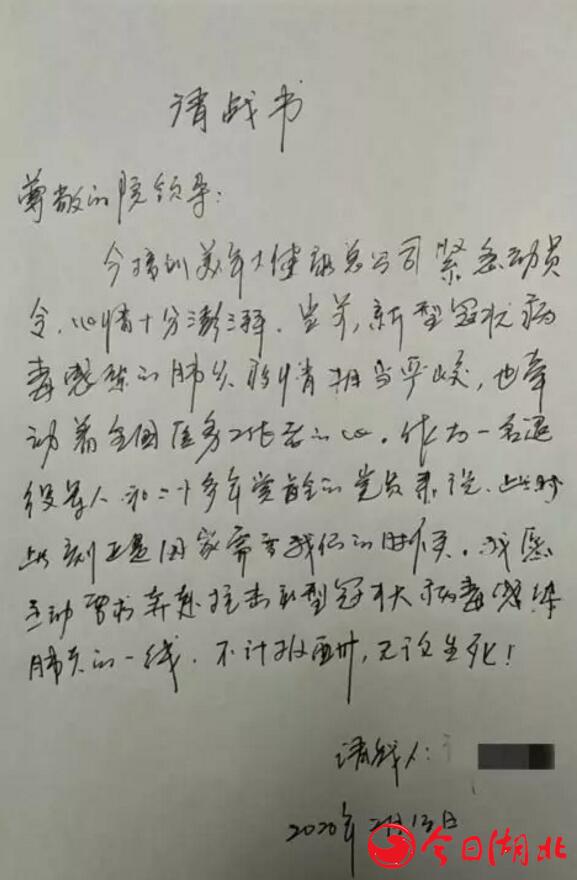 请战书
尊敬的院领导：
今接到美年大健康总公司紧急动员
令，心情十分澎湃。当前，新型冠状病
毒感染的肺炎疫情相当严峻，也牵
动着全国医务工作者的心。作为一名退
役军人和二十多年党龄的党员来说，此时
此刻正是国家需要我们的时候。我愿
主动要求奔赴抗击新型冠状病毒感染
肺炎的一线，不计报酬，无论生死！
请战人：
2020年2月13日
今日湖北